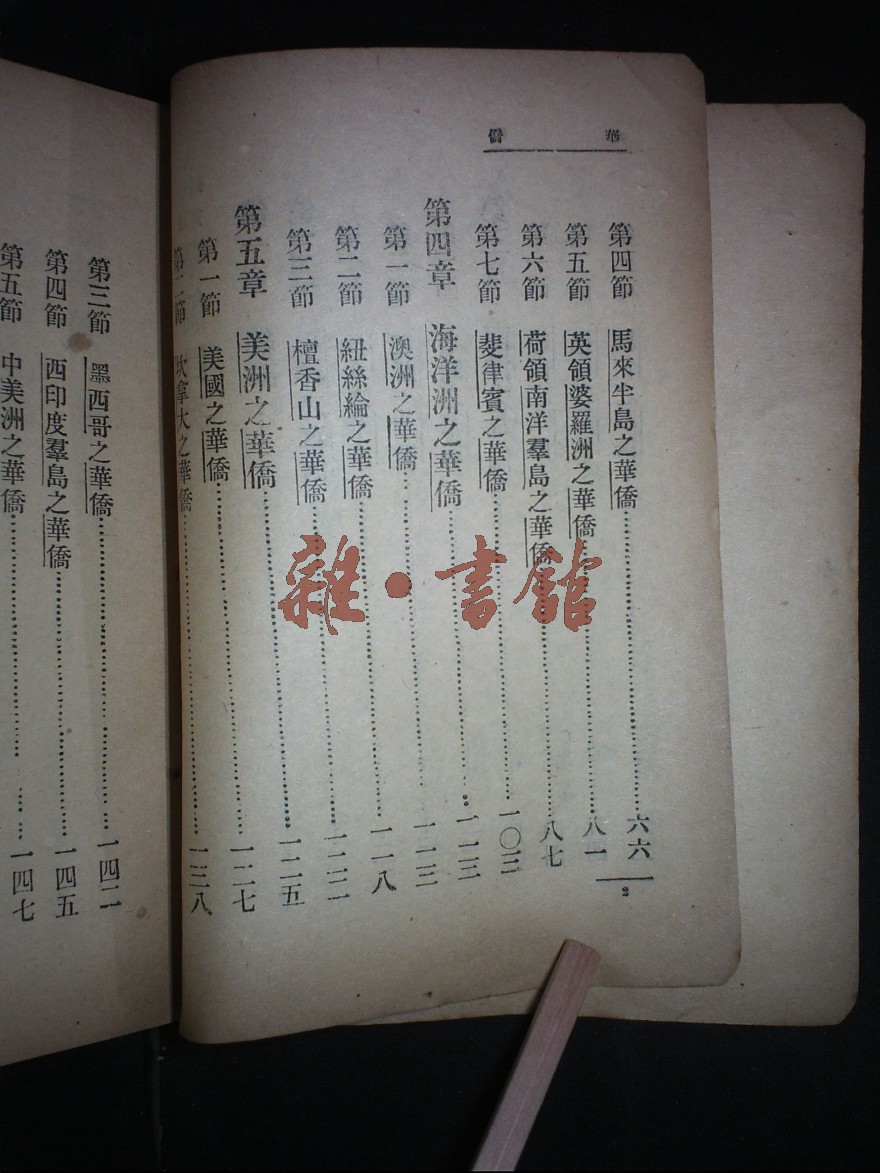 華僑
第四節 馬來半島之華僑……六六
第五節 英領婆羅洲之華僑……八一
第六節 荷領南洋羣島之華僑……八七
第七節 斐律賓之華僑……一〇三
第四章 海洋洲之華僑……一一三
第一節 澳洲之華僑……一一三
第二節 紐絲綸之華僑……一一八
第三節 檀香山之華僑……一二二
第五章 美洲之華僑……一二五
第一節 美國之華僑……一二七
第二節 坎拿大之華僑……一三八
2
第三節 墨西哥之華僑……一四二
第四節 西印度羣島之華僑……一四五
第五節 中美洲之華僑……一四七
雜·書館